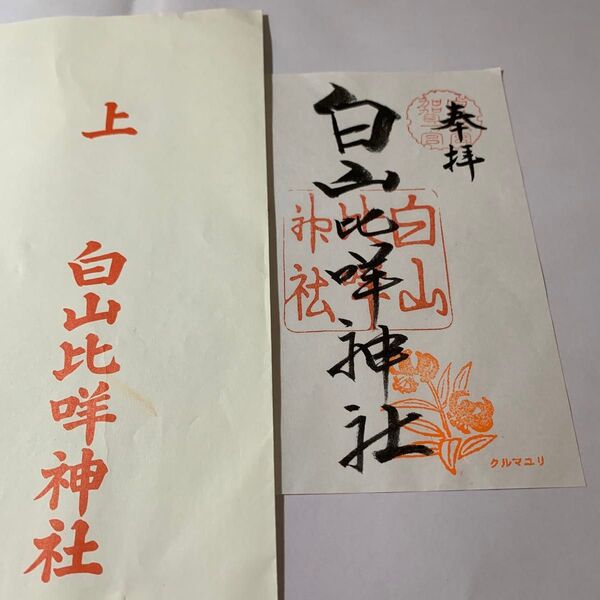 上
白山比咩神社
奉拝
白山比咩神社
白山
比咩
神社
クルマユリ